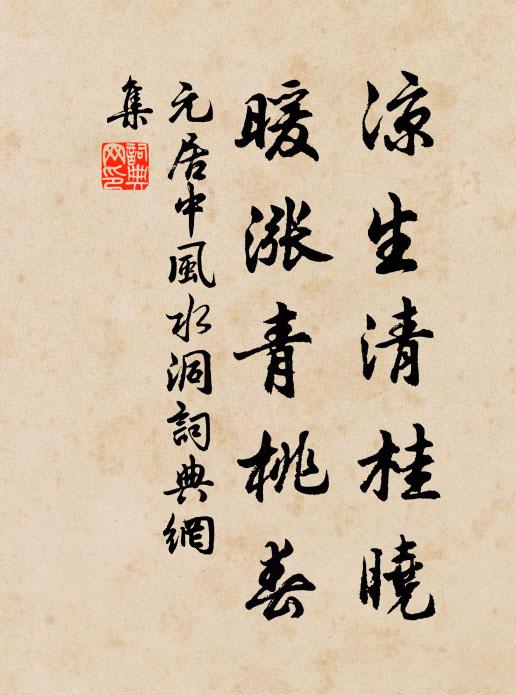 涼生清桂曉
暖漲青桃春
元居中風水洞詞典網
集
詞典網印